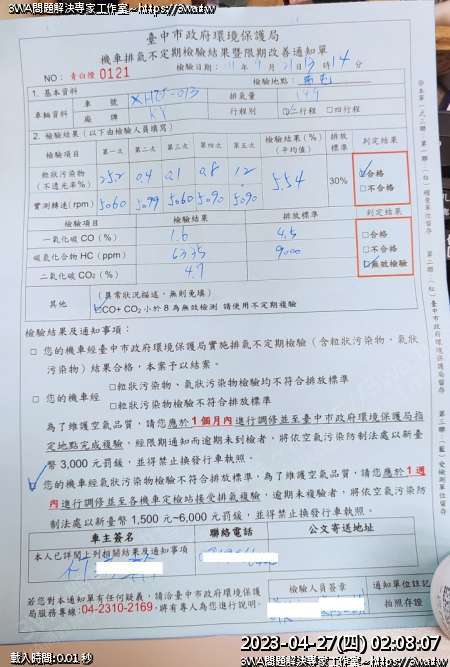 3WA問題解決專家工作室~https://3wa.tw
臺中市政府環境保護局
機車排氣不定期檢驗結果暨限期改善通知單
NO：青白煙 0121
檢驗日期：11 年 9 月 21 日 13 時 14 分
檢驗地點：
1. 基本資料
車輛資料 車號 排氣量 149
廠牌 KY 行程別 二行程 □四行程
2. 檢驗結果（以下由檢驗人員填寫）
檢驗項目 第一次 第二次 第三次 第四次 第五次 檢驗結果(%)(平均值) 排放標準 判定結果
粒狀污染物(不透光率%) 25.2 0.4 0.1 0.8 1.2 5.54 30% 合格 □不合格
實測轉速(rpm) 5060 5099 5060 5090 5090
檢驗項目 檢驗結果 排放標準 判定結果
一氧化碳 CO（%） 1.6 4.5 □合格
碳氫化合物 HC（ppm） 6335 9000 □不合格
二氧化碳 CO₂（%） 4.7 無效檢驗
其他 （異常狀況描述，無則免填）
CO+ CO₂ 小於 8 為無效檢測 請使用不定期複驗
檢驗結果及通知事項：
□ 您的機車經臺中市政府環境保護局實施排氣不定期檢驗（含粒狀污染物、氣狀
污染物）結果合格，本案予以結案。
□ 您的機車經 □粒狀污染物、氣狀污染物檢驗均不符合排放標準
□粒狀污染物檢驗不符合排放標準
為了維護空氣品質，請您應於 1 個月內進行調修並至臺中市政府環境保護局指
定地點完成複驗，經限期通知而逾期未到檢者，將依空氣污染防制法處以新臺
幣 3,000 元罰鍰，並得禁止換發行車執照。
您的機車經氣狀污染物檢驗不符合排放標準，為了維護空氣品質，請您應於 1 週
內進行調修並至各機車定檢站接受排氣複驗，逾期未複驗者，將依空氣污染防
制法處以新臺幣 1,500 元~6,000 元罰鍰，並得禁止換發行車執照。
車主簽名 聯絡電話 公文寄送地址
本人已詳閱上列相關結果及通知事項
若您對本通知單有任何疑義，請洽臺中市政府環境保護
局服務專線:04-2310-2169，將有專人為您進行說明。
檢驗人員簽章 通知單位註記
拍照存證
※本單一式三聯，第一聯（白）稽查單位留存 第二聯（紅）臺中市政府環境保護局留存 第三聯（藍）受檢測單位留存
2023-04-27(四) 02:08:07
載入時間:0.01 秒
3WA問題解決專家工作室~https://3wa.tw